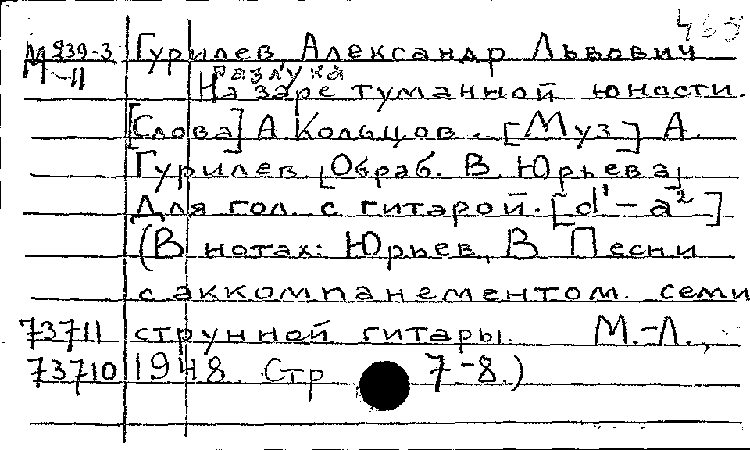 465
М 939-3 Гурилев Александр Львович
М-11 Разлука
На заре туманной юности.
[Слова] А Кольцов. [Муз] А.
Гурилев [Обраб. В. Юрьева]
Для гол. с гитарой. [d¹-a²]
(В нотах: Юрьев, В Песни
с аккомпанементом семи
73711 струнной гитары. М.-Л.,
73710 1948. Стр 7-8.)